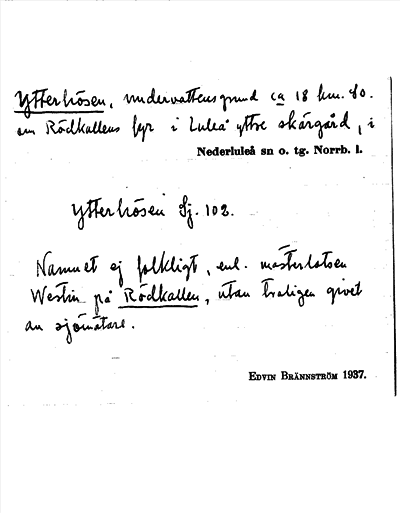 Ytterhösen, undervattensgrund ca 18 km. SO.
om Rödkallens fyr i Luleå yttre skärgård, i
Nederluleå sn o. tg. Norrb. l.
Ytterhösen Sj. 102.
Namnet ej folkligt, enl. mästerlotsen
Westin på Rödkallen, utan troligen givet
av sjömätare.
EDVIN BRÄNNSTRÖM 1937.